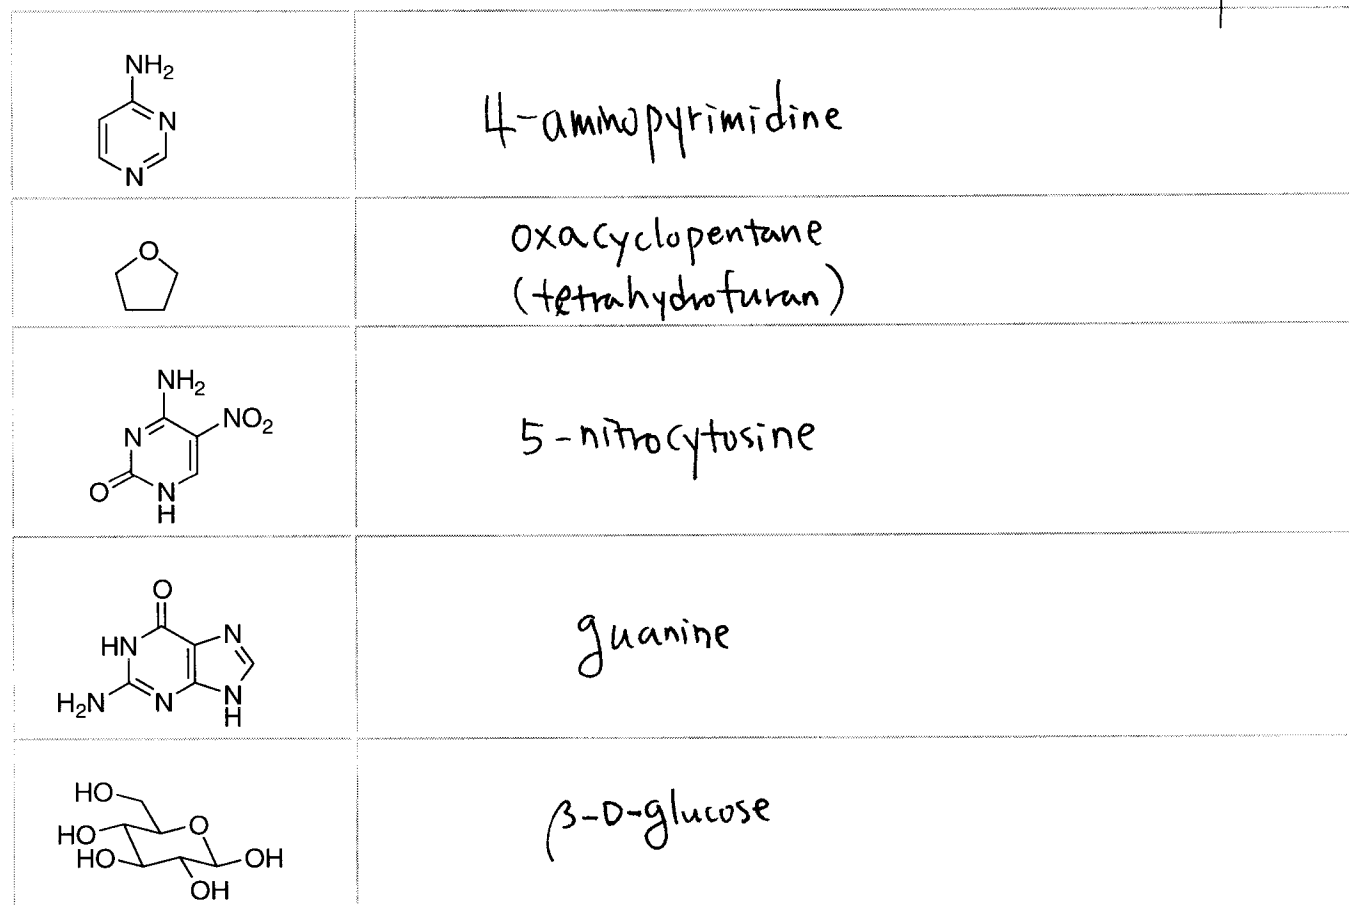 NH₂
N
N
4-aminopyrimidine
O
oxacyclopentane
(tetrahydrofuran)
NH₂
NO₂
N
O
N
H
5-nitrocytosine
O
HN
N
H₂N
N
N
H
guanine
HO
O
HO
HO
OH
OH
β-D-glucose